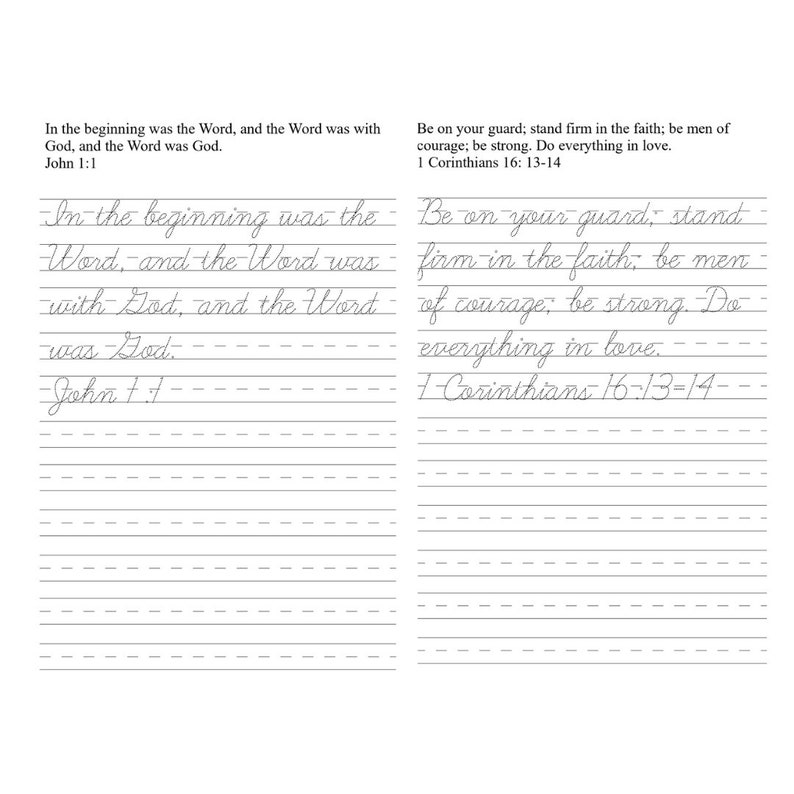 In the beginning was the Word, and the Word was with
God, and the Word was God.
John 1:1
In the beginning was the
Word, and the Word was
with God, and the Word
was God.
John 1:1
Be on your guard; stand firm in the faith; be men of
courage; be strong. Do everything in love.
1 Corinthians 16: 13-14
Be on your guard; stand
firm in the faith; be men
of courage; be strong. Do
everything in love.
1 Corinthians 16:13-14